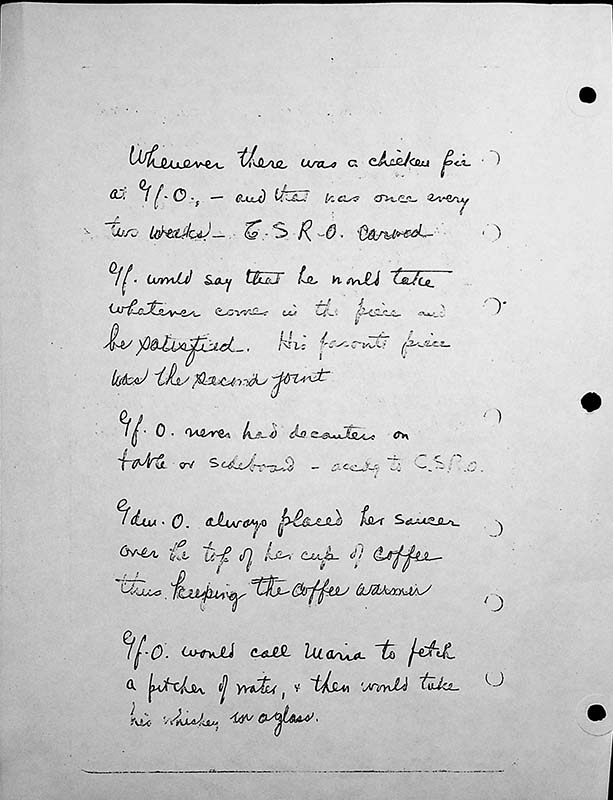 Whenever there was a chicken pie
at Gf. O., – and that was once every
two weeks – C. S. R. O. carved
Gf. would say that he would take
whatever comes in the piece and
be satisfied. His favorite piece
was the second joint
Gf. O. never had decanters on
table or sideboard – accdg to C.S.R.O.
Gdm. O. always placed her saucer
over the top of her cup of coffee
thus keeping the coffee warmer
Gf. O. would call Maria to fetch
a pitcher of water, & then would take
his whiskey in a glass.